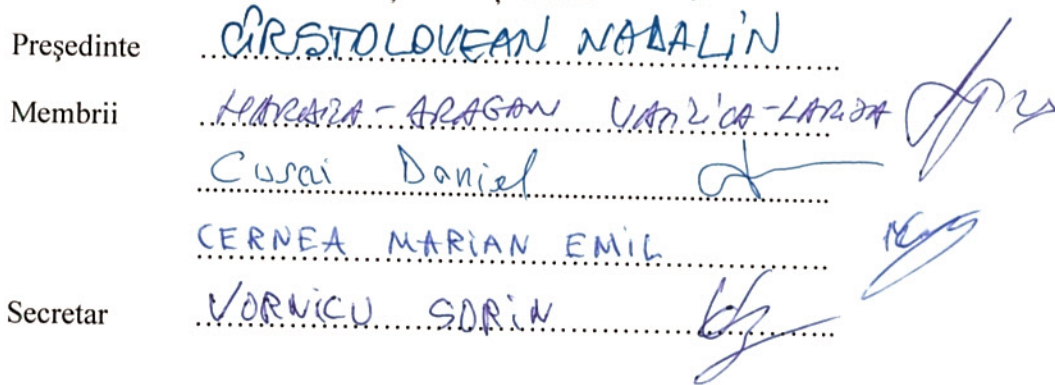 Președinte CÎRSTOLOVEAN NADALIN
Membrii ARAGAN
Cusai Daniel
CERNEA MARIAN EMIL
Secretar VORNICU SORIN